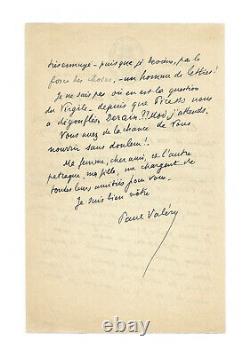 désennuyé - puisque je deviens, par la
force des choses, - un homme de lettres!
Je ne sais pas où en est la question
du Virgile - depuis que Picasso nous
a dégonflés. Derain??? Moi, j'attends.
Vous avez de la chance de vous
nourrir sans douleur!
Ma femme, cher ami, et l'autre
ma fille, me chargent de
toutes leurs amitiés pour vous.
Je suis bien vôtre
Paul Valéry
ebay